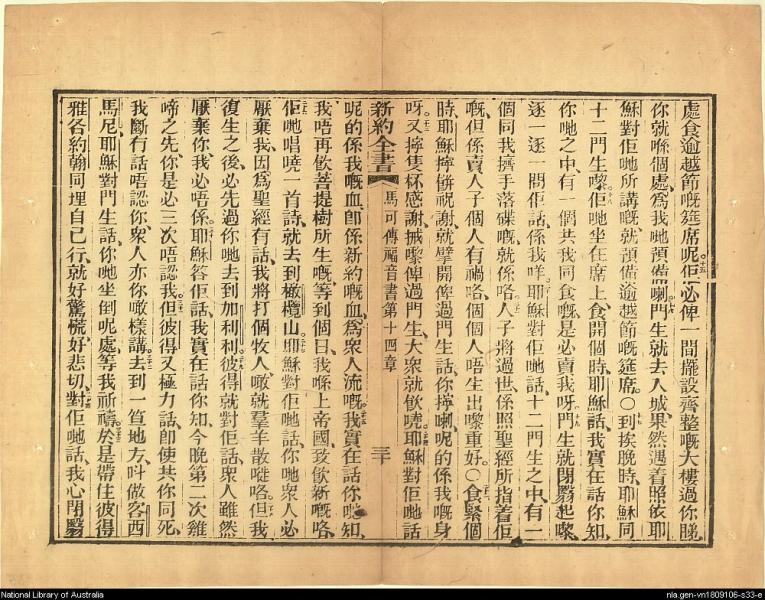 處食逾越節嘅筵席呢佢必俾一間擺設齊整嘅大樓過你睇
你就喺個處爲我哋預備喇門生就去入城果然遇着照依耶
穌對佢哋所講嘅就預備逾越節嘅筵席〇到挨晚時耶穌同
十二門生嚟佢哋坐在席上食開個時耶穌話我實在話你知
你哋之中有一個共我同食嘅是必賣我呀門生就閉翳起嚟
逐一逐一問佢話係我咩耶穌對佢哋話十二門生之中有一
個同我擠手落碟嘅就係咯人子將過世係照聖經所指着佢
嘅但係賣人子個人有禍咯個個人唔生出嚟重好〇食緊個
時耶穌擰餅祝謝就擘開俾過門生話你擰喇呢的係我嘅身
呀又擰隻杯感謝𢫦嚟俾過門生大衆就飲曉耶穌對佢哋話
新約全書 馬可傳福音書第十四章 三十
呢的係我嘅血卽係新約嘅血爲衆人流嘅我實在話你哋知
我唔再飲菩提樹所生嘅等到個日我喺上帝國致飲新嘅咯
佢哋唱曉一首詩就去到橄欖山耶穌對佢哋話你哋衆人必
厭棄我因爲聖經有話我將打個牧人噉就羣羊散嗮咯但我
復生之後必先過你哋去到加利利彼得就對佢話衆人雖然
厭棄你我必唔係耶穌答佢話我實在話你知今晚第二次雞
啼之先你是必三次唔認我但彼得又極力話卽使共你同死
我斷有話唔認你衆人亦你噉樣講去到一笪地方呌做客西
馬尼耶穌對門生話你哋坐倒呢處等我祈禱於是帶住彼得
雅各約翰同埋自己行就好驚慌好悲切對佢哋話我心閉翳
National Library of Australia
nla.gen-vn1809106-s33-e